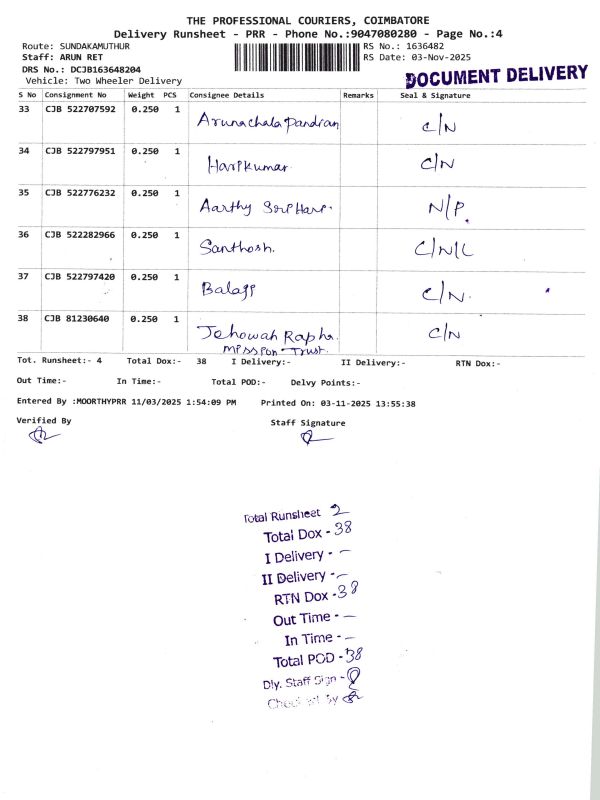 THE PROFESSIONAL COURIERS, COIMBATORE
Delivery Runsheet - PRR - Phone No.:9047080280 - Page No.:4
Route: SUNDAKAMUTHUR RS No.: 1636482
Staff: ARUN RET RS Date: 03-Nov-2025
DRS No.: DCJB163648204
Vehicle: Two Wheeler Delivery
DOCUMENT DELIVERY
S No Consignment No Weight PCS Consignee Details Remarks Seal & Signature
33 CJB 522707592 0.250 1 Arunachala Pandian C/N
34 CJB 522797951 0.250 1 Harikumar. C/N
35 CJB 522776232 0.250 1 Aarthy Sri Hari. N/P.
36 CJB 522282966 0.250 1 Santhosh. C/N/L
37 CJB 522797420 0.250 1 Balaji C/N.
38 CJB 81230640 0.250 1 Jehowah Rapha. C/N
Mission Trust.
Tot. Runsheet:- 4 Total Dox:- 38 I Delivery:- II Delivery:- RTN Dox:-
Out Time:- In Time:- Total POD:- Delvy Points:-
Entered By :MOORTHYPRR 11/03/2025 1:54:09 PM Printed On: 03-11-2025 13:55:38
Verified By Staff Signature
Total Runsheet 2
Total Dox - 38
I Delivery - —
II Delivery - —
RTN Dox - 38
Out Time - —
In Time - —
Total POD - 38
Dly. Staff Sign -
Checked By